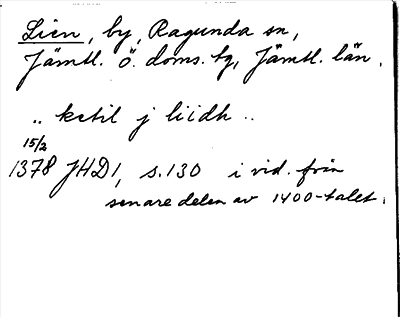 Lien, by, Ragunda sn,
Jämtl. ö. doms. tg, Jämtl. län.
.. ketil j liidh ..
15/2
1378 JHD1, s.130 i vid. från
senare delen av 1400-talet.